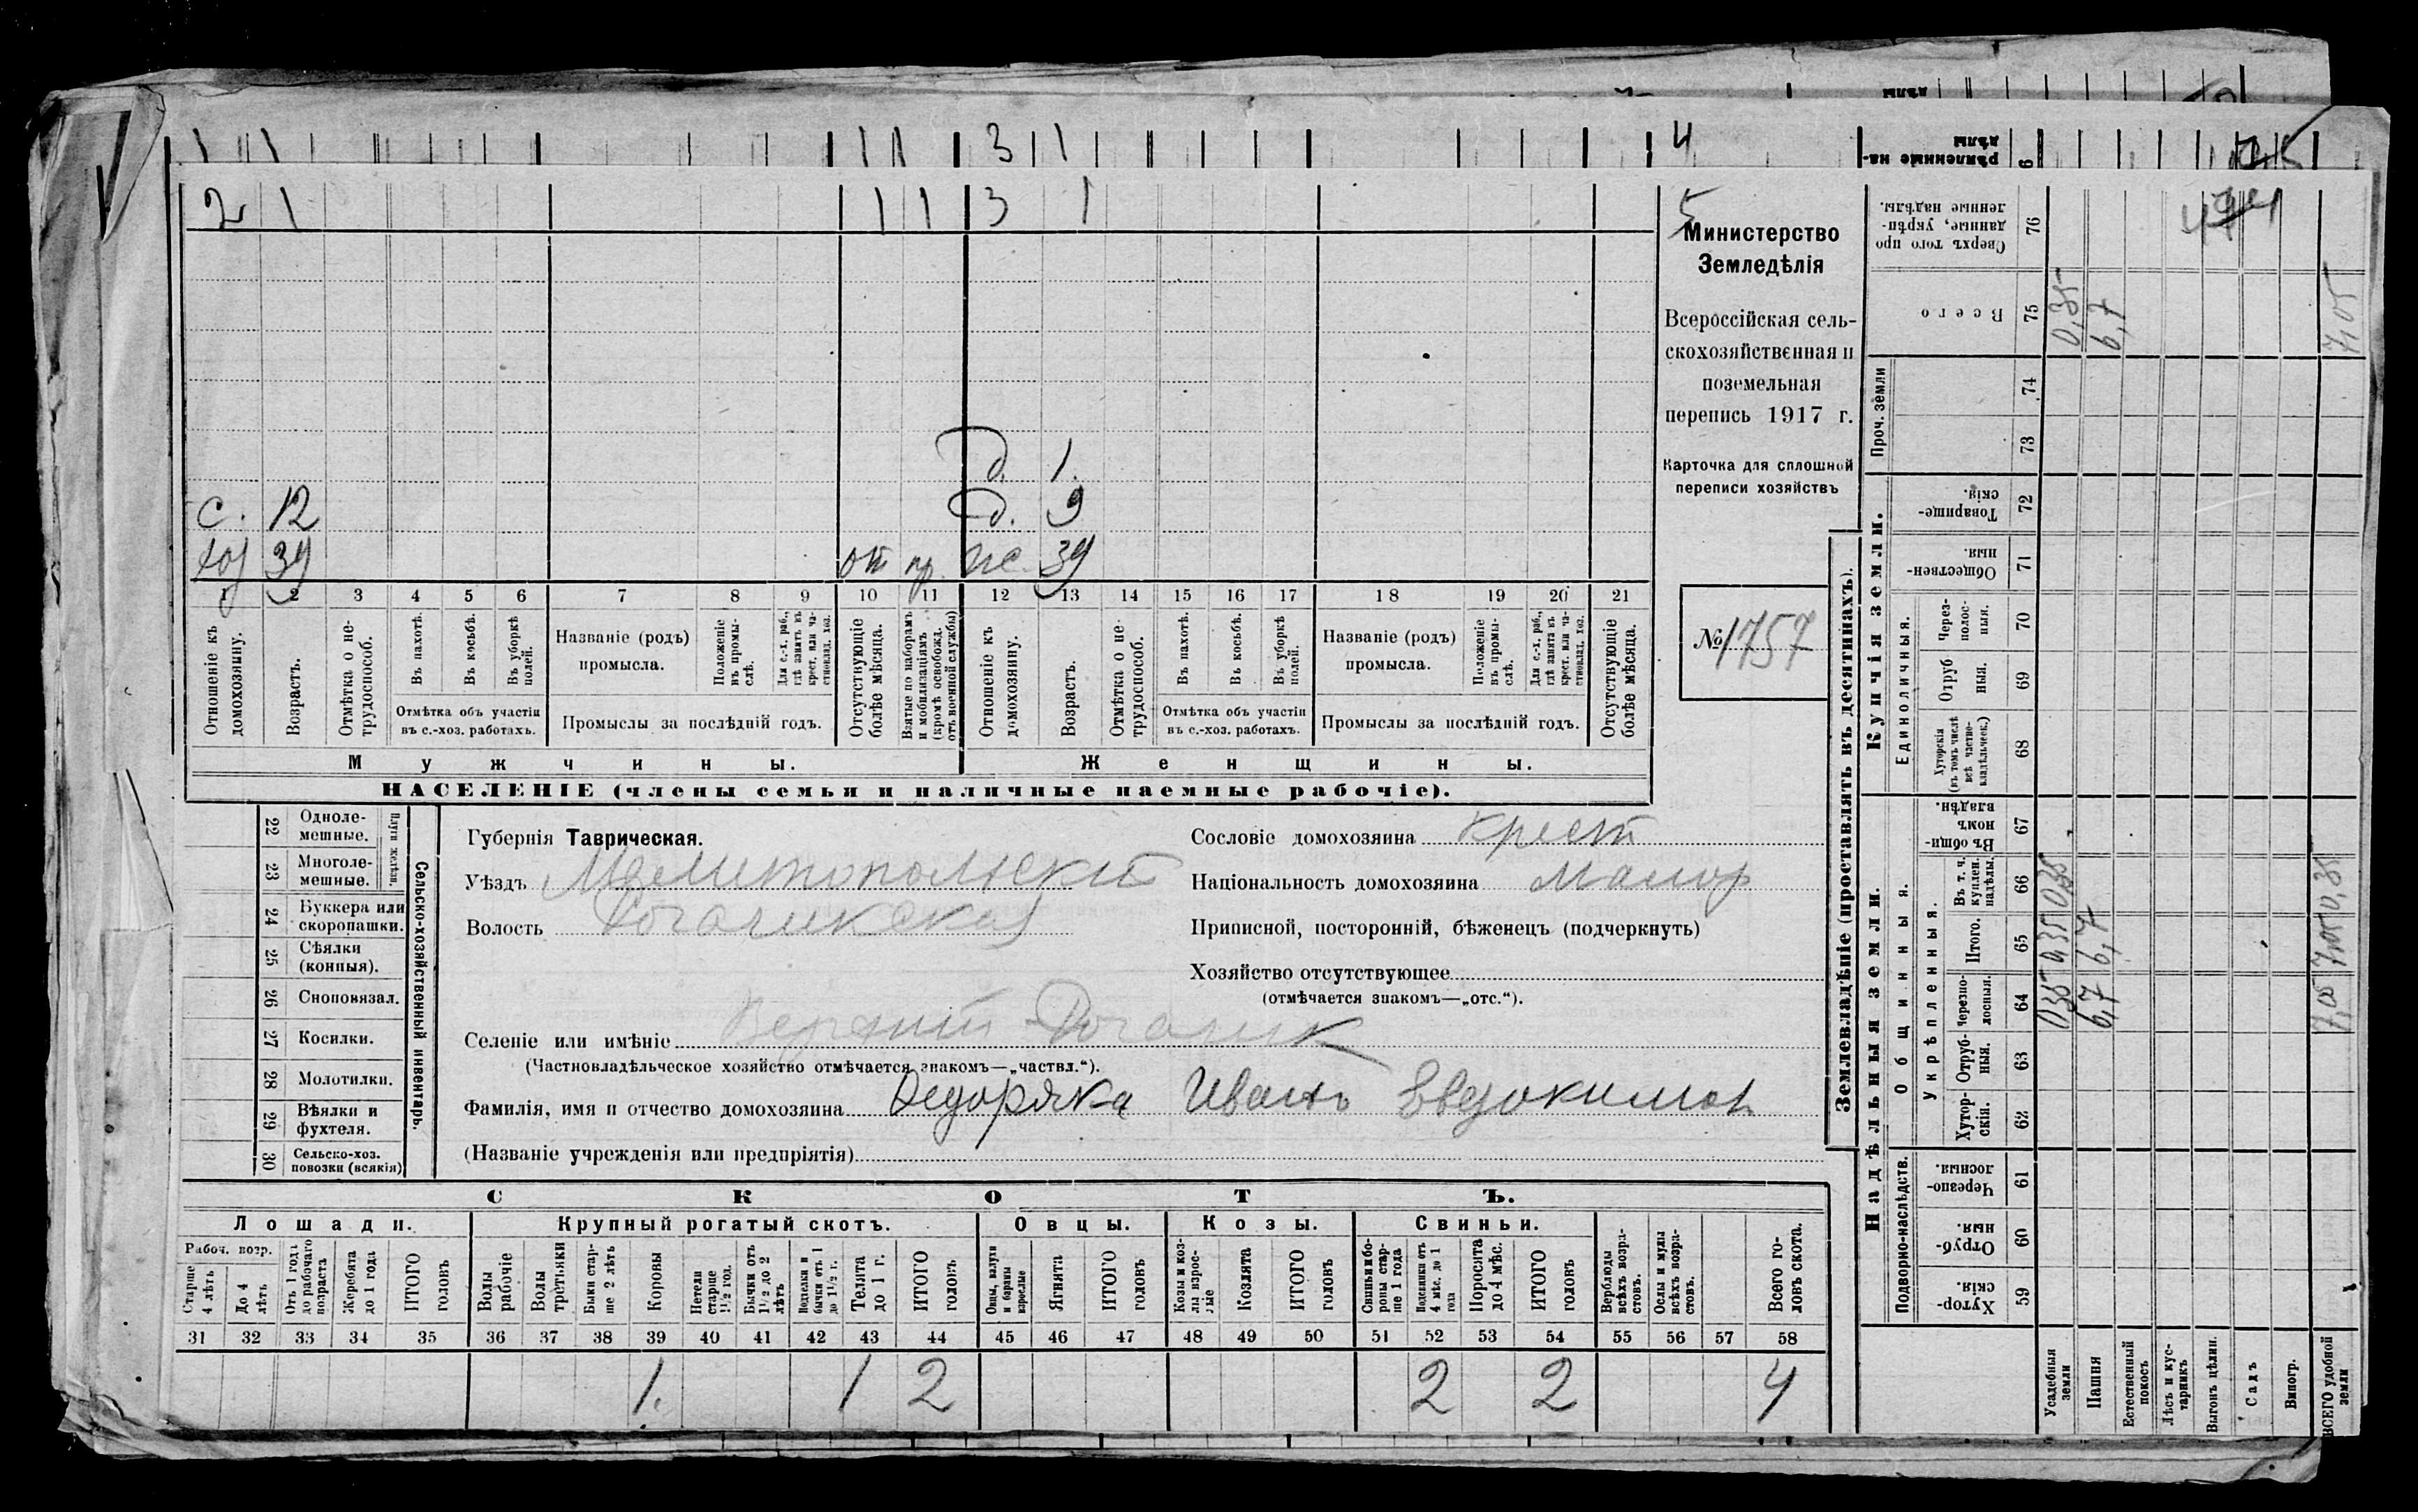 2 1 1 1 3 1 5
Д. 1.
с. 12 Д. 9
хоз 39 от пр. же. 39
1 2 3 4 5 6 7 8 9 10 11 12 13 14 15 16 17 18 19 20 21
Отношеніе къ домохозяину.
Возрастъ.
Отмѣтка о не-трудоспособ.
Въ пахотѣ.
Въ косьбѣ.
Въ уборкѣ полей.
Отмѣтка объ участіи
въ с.-хоз. работахъ.
Названіе (родъ)
промысла.
Положеніе въ промы-слѣ.
Для с.-х. раб., гдѣ занятъ въ крест. или ча-стновлад. хоз.
Промыслы за послѣдній годъ.
Отсутствующіе болѣе мѣсяца.
Взятые по наборамъ и мобилизаціямъ (кромѣ освобожд. отъ военной службы)
Отношеніе къ домохозяину.
Возрастъ.
Отмѣтка о не-трудоспособ.
Въ пахотѣ.
Въ косьбѣ.
Въ уборкѣ полей.
Отмѣтка объ участіи
въ с.-хоз. работахъ.
Названіе (родъ)
промысла.
Положеніе въ промы-слѣ.
Для с.-х. раб., гдѣ занята въ крест. или ча-стновлад. хоз.
Промыслы за послѣдній годъ.
Отсутствующіе болѣе мѣсяца.
Мужчины. Женщины.
НАСЕЛЕНІЕ (члены семьи и наличные наемные рабочіе).
Министерство
Земледѣлія
Всероссійская сель-
скохозяйственная и
поземельная
перепись 1917 г.
Карточка для сплошной
переписи хозяйствъ
№ 1757
22 Одноле-мешные.
23 Многоле-мешные.
Плуги желѣзн.
24 Буккера или скоропашки.
25 Сѣялки (конныя).
26 Сноповязал.
27 Косилки.
28 Молотилки.
29 Вѣялки и фухтеля.
30 Сельско-хоз. повозки (всякія)
Сельско-хозяйственный инвентарь.
Губернія Таврическая.
Уѣздъ Мелитопольскій
Волость Рогачикская
Сословіе домохозяина крест
Національность домохозяина малор
Приписной, посторонній, бѣженецъ (подчеркнуть)
Хозяйство отсутствующее
(отмѣчается знакомъ—„отс.“).
Селеніе или имѣніе Верхній Рогачик
(Частновладѣльческое хозяйство отмѣчается знакомъ—„частвл.“).
Фамилія, имя и отчество домохозяина Федоряка Иванъ Евдокимов
(Названіе учрежденія или предпріятія)
СКОТЪ.
Лошади. Крупный рогатый скотъ. Овцы. Козы. Свиньи.
Рабоч. возр.
Старше 4 лѣтъ
До 4 лѣтъ
Отъ 1 года до рабочаго возраста
Жеребята до 1 года
ИТОГО головъ
Волы рабочіе
Волы третьяки
Быки стар-ше 2 лѣтъ
Коровы
Нетели старше 1½ год.
Бычки отъ 1½ до 2 лѣтъ
Подтелки и бычки отъ 1 до 1½ г.
Телята до 1 г.
ИТОГО головъ
Овцы, валухи и бараны взрослые
Ягнята
ИТОГО головъ
Козы и коз-лы взрос-лые
Козлята
ИТОГО головъ
Свиньи и бо-ровы стар-ше 1 года
Подсвинки отъ 4 мѣс. до 1 года
Поросята до 4 мѣс.
ИТОГО головъ
Верблюды всѣхъ возра-стовъ.
Ослы и мулы всѣхъ возра-стовъ.
Всего го-ловъ скота.
31 32 33 34 35 36 37 38 39 40 41 42 43 44 45 46 47 48 49 50 51 52 53 54 55 56 57 58
1. 1 2 2 2 4
Землевладѣніе (проставлять въ десятинахъ).
Надѣльныя земли. Купчія земли. Проч. земли
Подворно-наслѣдств. Общинныя. Единоличныя.
Укрѣпленныя.
Хутор-скія. 59
Отруб-ныя 60
Черезпо-лосныя. 61
Хутор-скія. 62
Отруб-ныя. 63
Черезпо-лосныя. 64
Итого. 65
Въ т. ч. куплен. надѣлы. 66
Въ общин-номъ владѣн. 67
Хуторскія (въ томъ числѣ всѣ частно-владѣльческ.) 68
Отруб ныя. 69
Через-полос-ныя. 70
Обществен-ныя. 71
Товарище-скія. 72
73
74
Всего 75
Сверхъ того про данные, укрѣп-ленные надѣлы. 76
Усадебныя земли 0,35 0,35 0,35 0,35
Пашня 6,7 6,7 6,7
Естественный покосъ
Лѣсъ и кус-тарникъ
Выгонъ цѣлин.
Садъ
Виногр.
ВСЕГО удобной земли 7,05 7,05 0,35 7,05